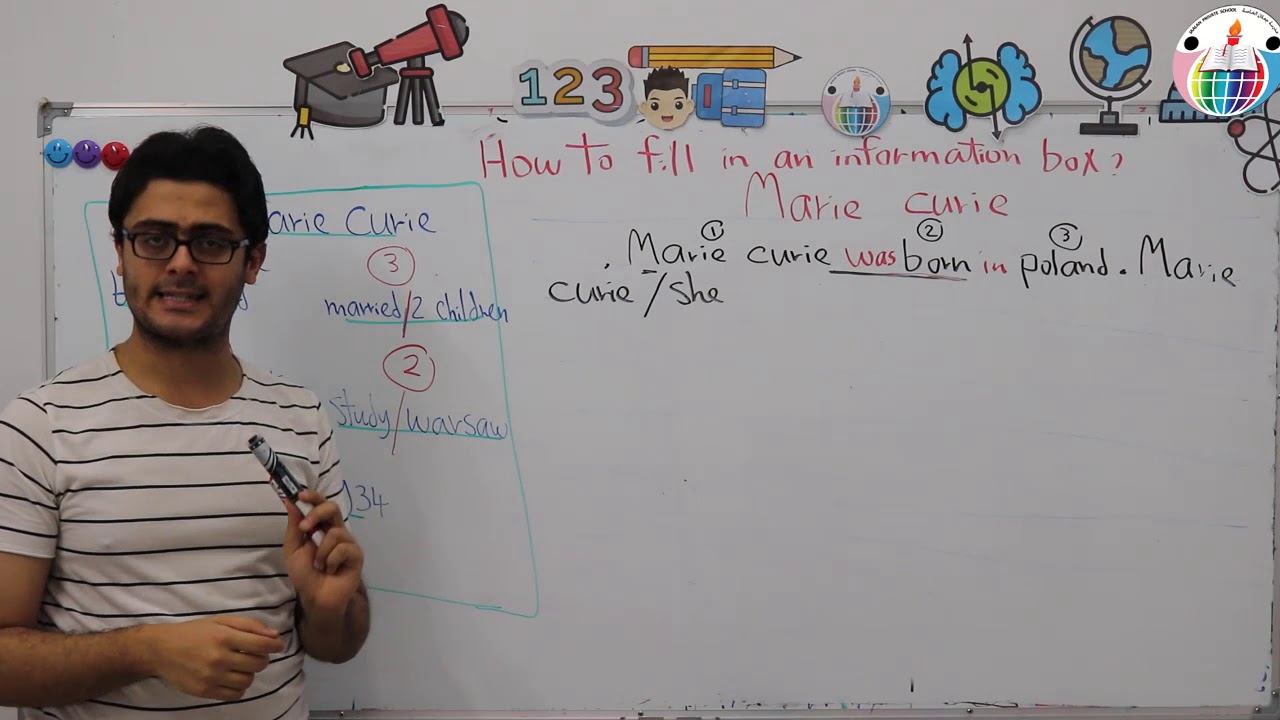 123
MALAK PRIVATE SCHOOL
How To fill in an information box?
Marie curie
arie Curie
3
married/2 children
2
study/warsaw
)34
1 2 3
. Marie curie was born in poland. Marie
curie/she